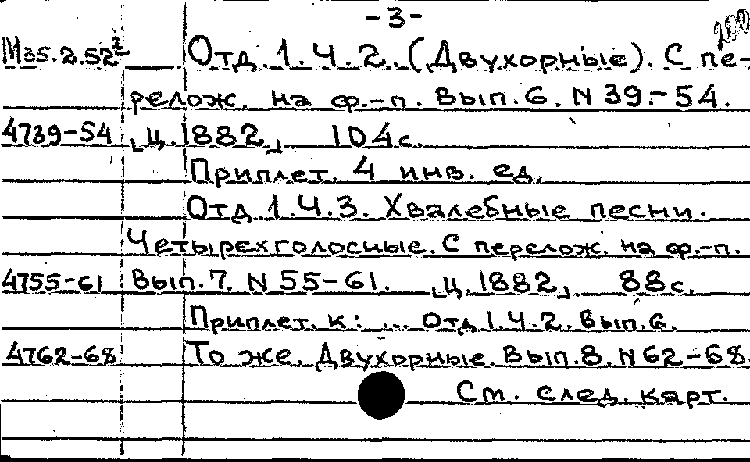 -3-
200
М35.2.52² Отд 1.Ч.2. (Двухорные). С пе-
релож. на ф.-п. Вып.6. N 39-54.
4739-54 [ц.1882] 104с.
Приплет. 4 инв. ед.
Отд 1.Ч.3. Хвалебные песни.
Четырехголосные. С перелож. на ф.-п.
4755-61 Вып.7. N 55-61. [ц.1882] 88с.
Приплет. к: ... Отд 1.Ч.2. Вып.6.
4762-68 То же. Двухорные. Вып.8. N62-68
См. след. карт.